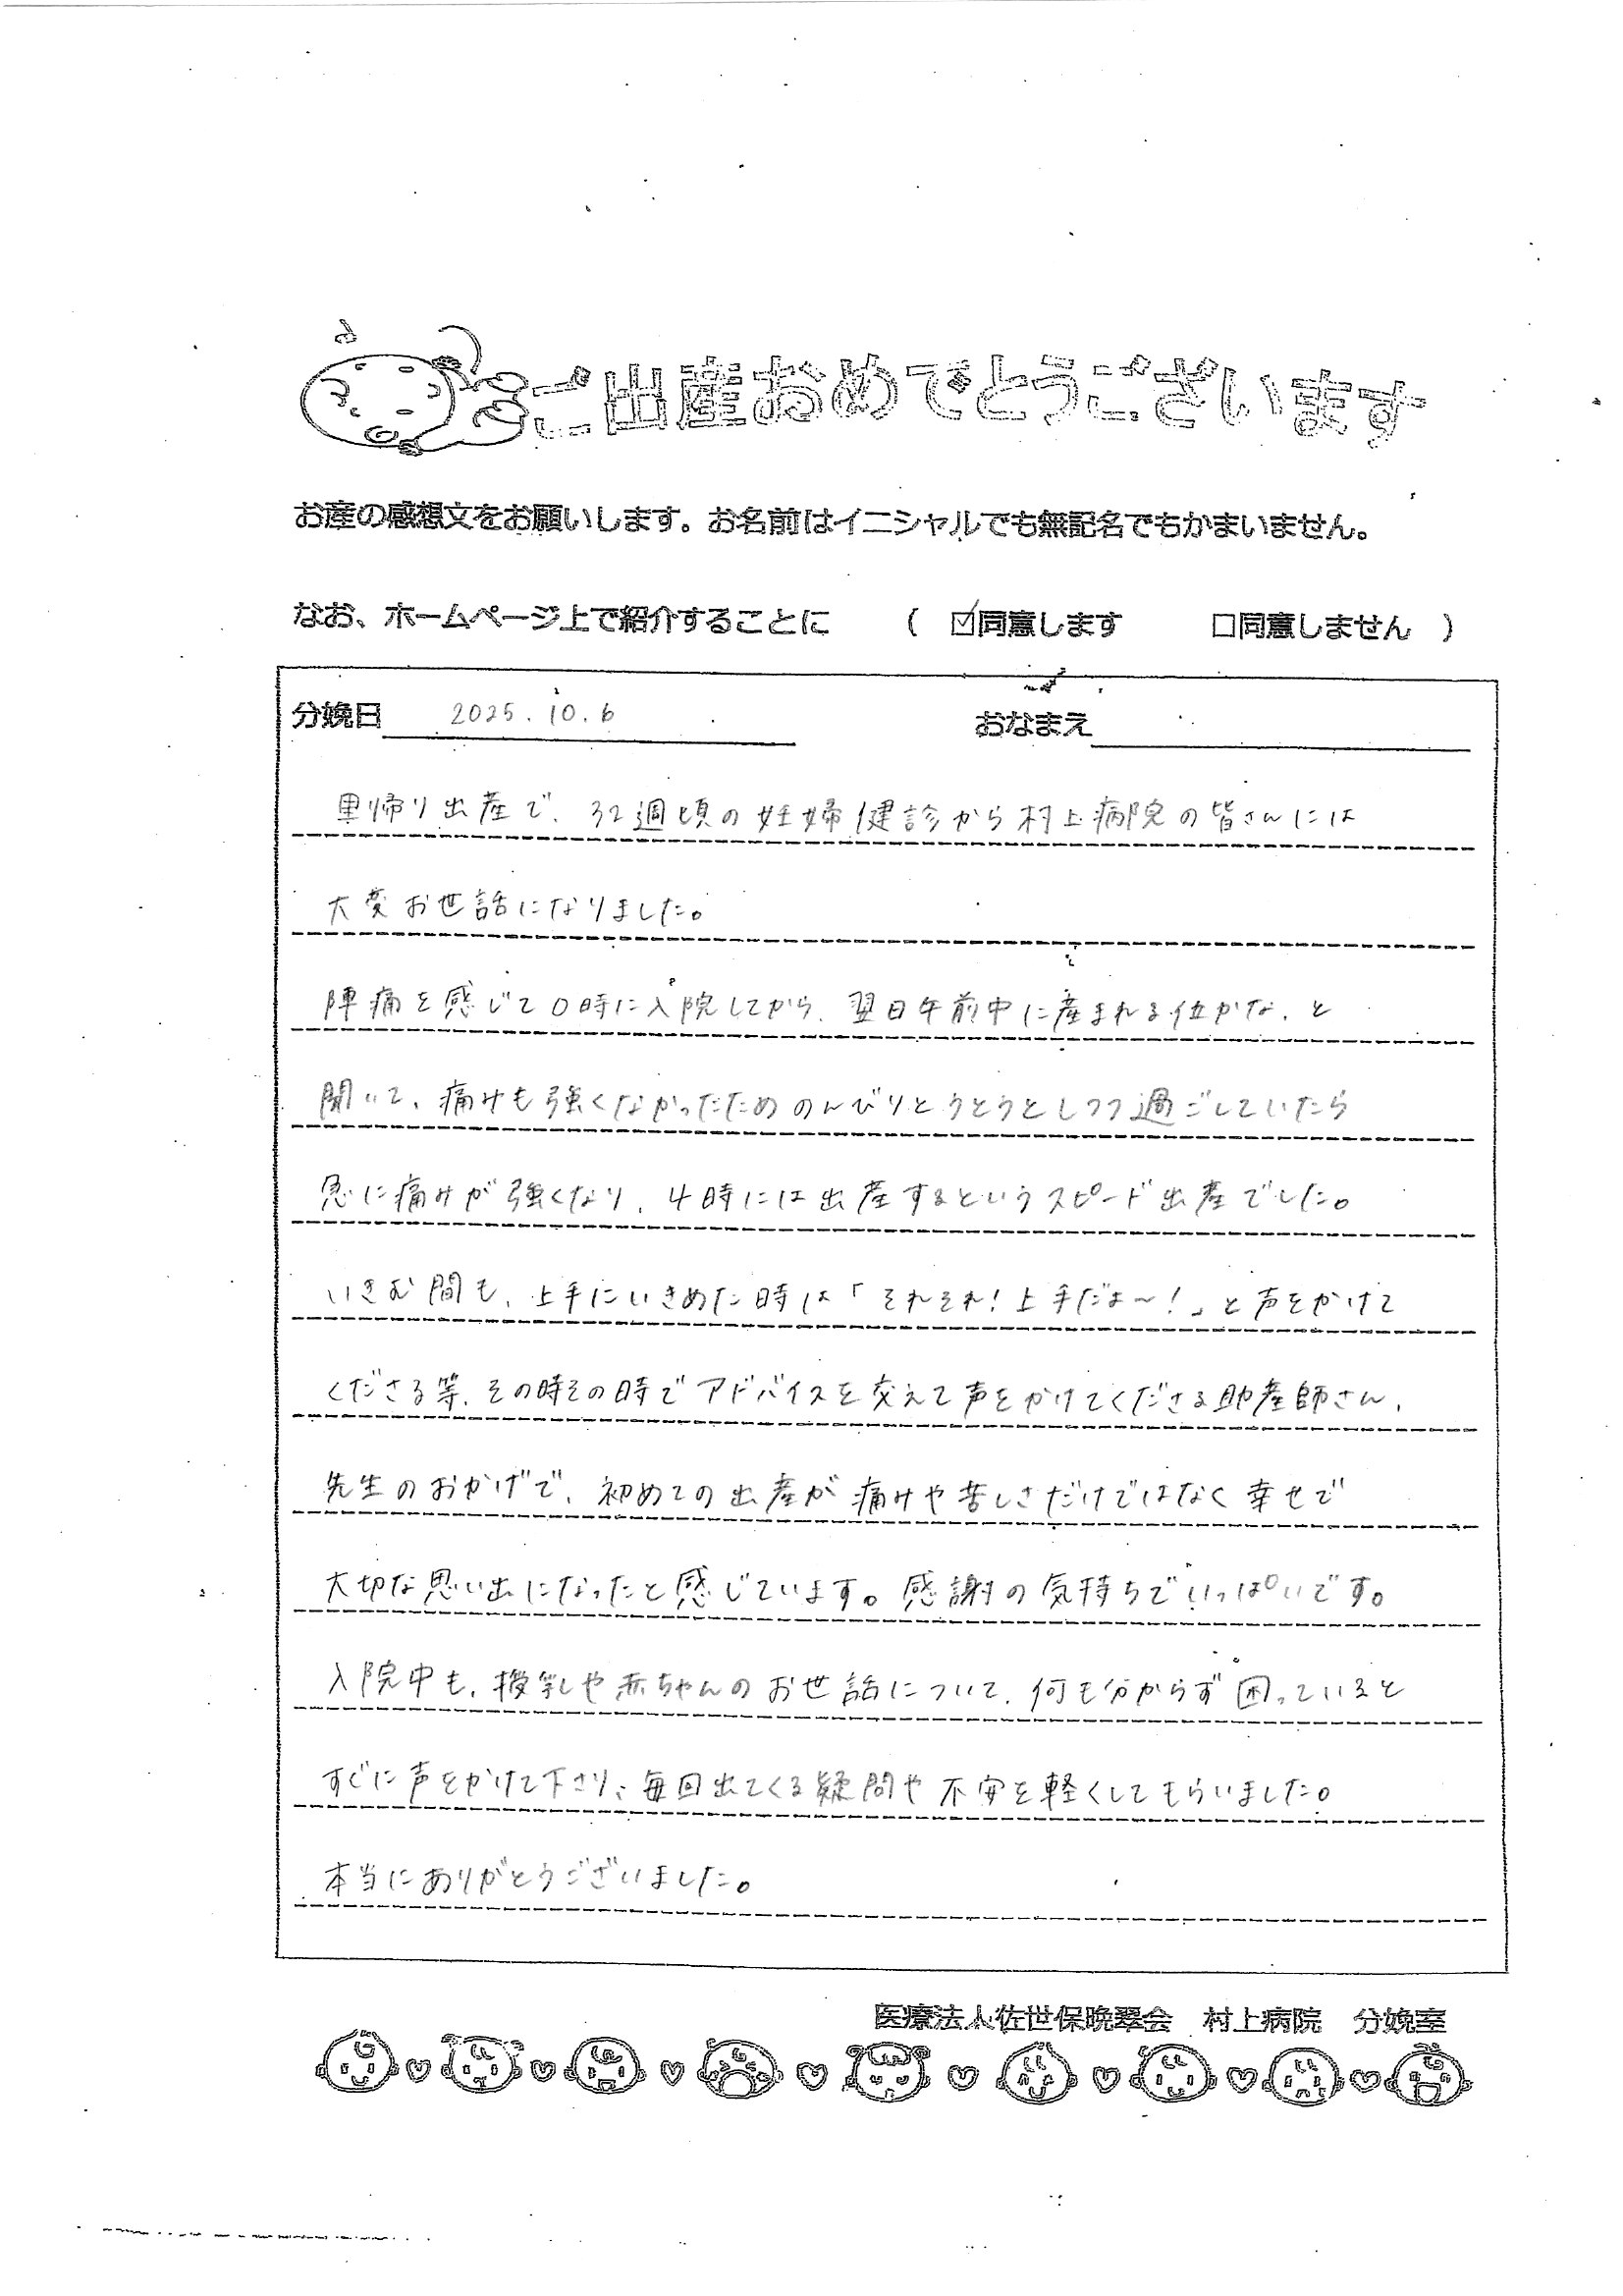 ご出産おめでとうございます
お産の感想文をお願いします。お名前はイニシャルでも無記名でもかまいません。
なお、ホームページ上で紹介することに ( ☑同意します □同意しません )
分娩日 2025.10.6 おなまえ
里帰り出産で、32週頃の妊婦健診から村上病院の皆さんには
大変お世話になりました。
陣痛を感じて0時に入院してから、翌日午前中に産まれる位かな、と
聞いて、痛みも強くなかったためのんびりとうとうとしつつ過ごしていたら
急に痛みが強くなり、4時には出産するというスピード出産でした。
いきむ間も、上手にいきめた時は「それそれ!上手だよ〜!」と声をかけて
くださる等、その時その時でアドバイスを交えて声をかけてくださる助産師さん、
先生のおかげで、初めての出産が痛みや苦しさだけではなく幸せで
大切な思い出になったと感じています。感謝の気持ちでいっぱいです。
入院中も、授乳や赤ちゃんのお世話について、何も分からず困っていると
すぐに声をかけて下さり、毎回出てくる疑問や不安を軽くしてもらいました。
本当にありがとうございました。
医療法人佐世保晩翠会 村上病院 分娩室